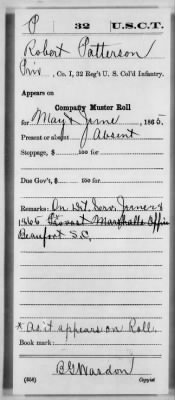 P | 32 | U.S.C.T.
Robert Patterson
Priv, Co. I, 32 Reg't U. S. Col'd Infantry.
Appears on
Company Muster Roll
for May & June, 1865.
Present or absent Absent
Stoppage, $ 100 for
Due Gov't, $ 100 for
Remarks: On Det. Serv. June 4
1865 Provost Marshalls Office
Beaufort S.C.
* As it appears on Roll.
Book mark:
B G Wardon
(858) Copyist